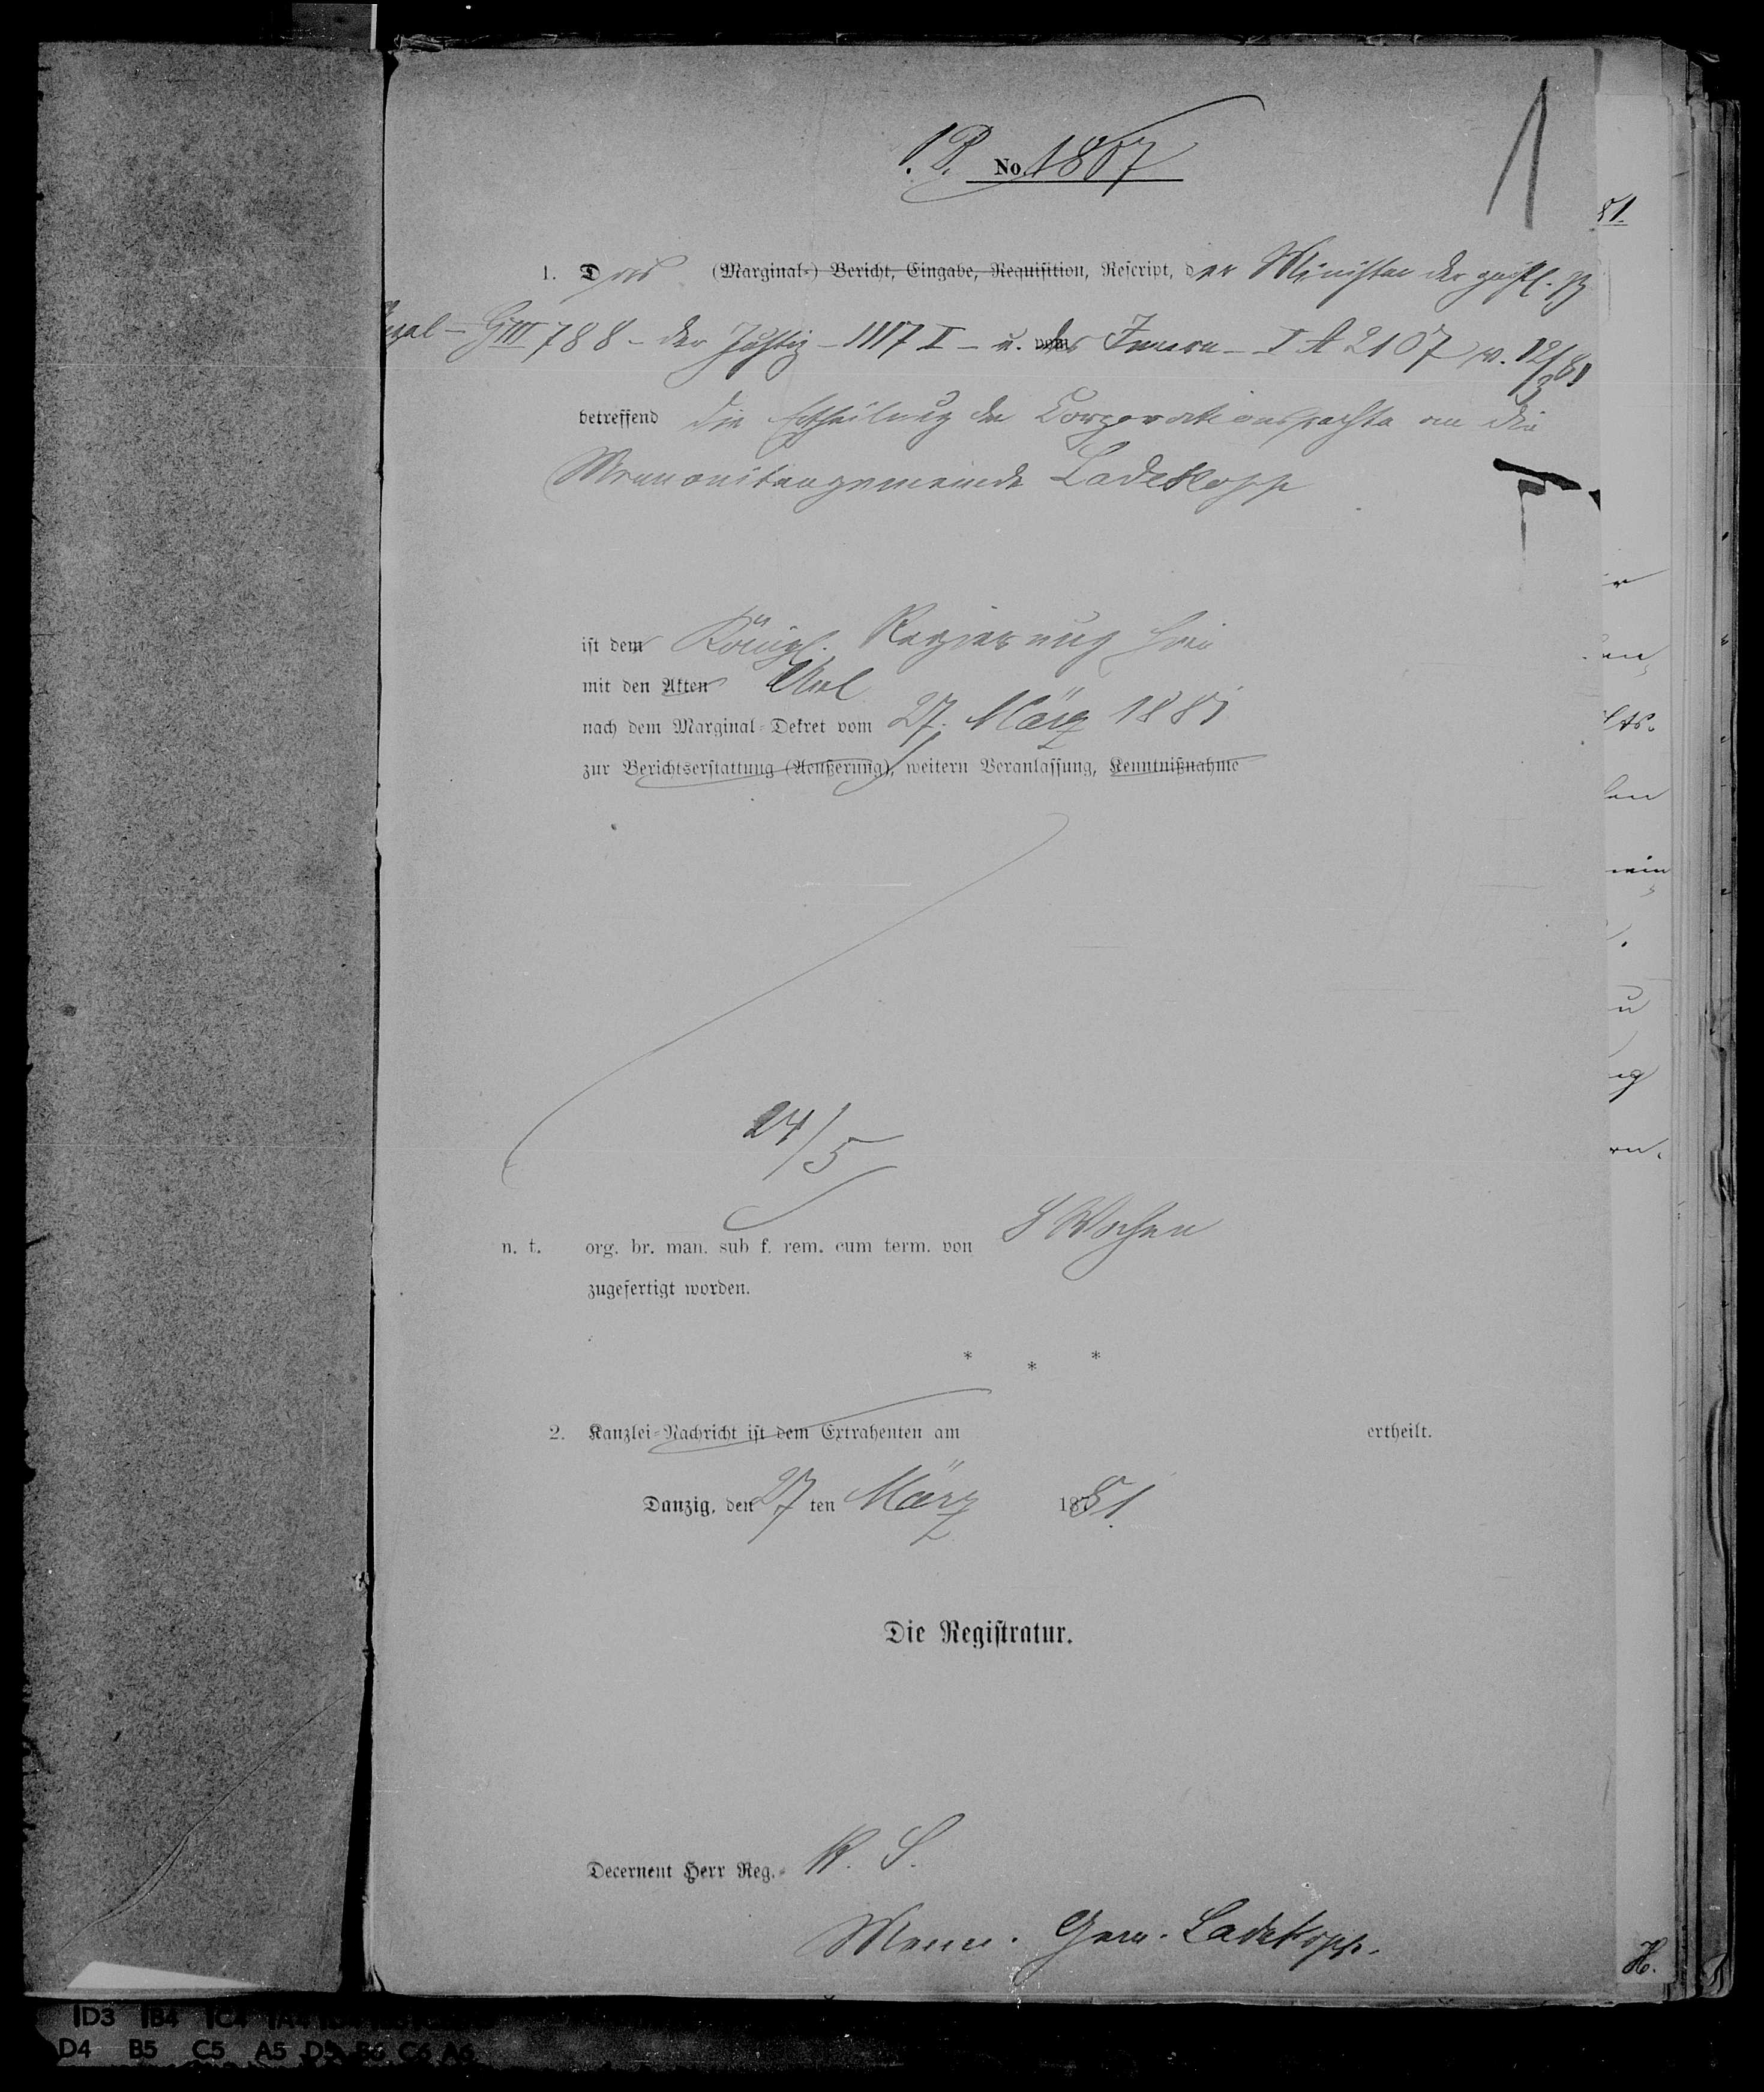 1
P. No. 1857
1. Das (Marginal-) Bericht, Eingabe, Requisition, Rescript, der Minister der geistl. p
51.
G III 788 - der Justiz - 1117 I - u. des Innern - I A 2107 v. 12/3 81
betreffend die Ertheilung der Corporationsrechte an die
Mennonitengemeinde Ladekopp
ist dem Königl. Regierung hier
mit den Akten
nach dem Marginal-Dekret vom 27. März 1881
zur Berichtserstattung (Aeußerung), weitern Veranlassung, Kenntnißnahme
24/5
n. t. org. br. man. sub f. rem. cum term. von 8 Wochen
zugefertigt worden.
* * *
2. Kanzlei-Nachricht ist dem Extrahenten am ertheilt.
Danzig, den 27 ten März 1881
Die Registratur.
Decernent Herr Reg.- K. S.
Menn. Gem. Ladekopp.
D3 B4 C4 A4
D4 B5 C5 A5 D5 B6 C6 A6